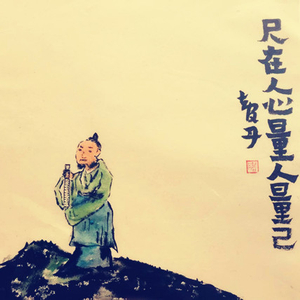 尺在人心量人量己